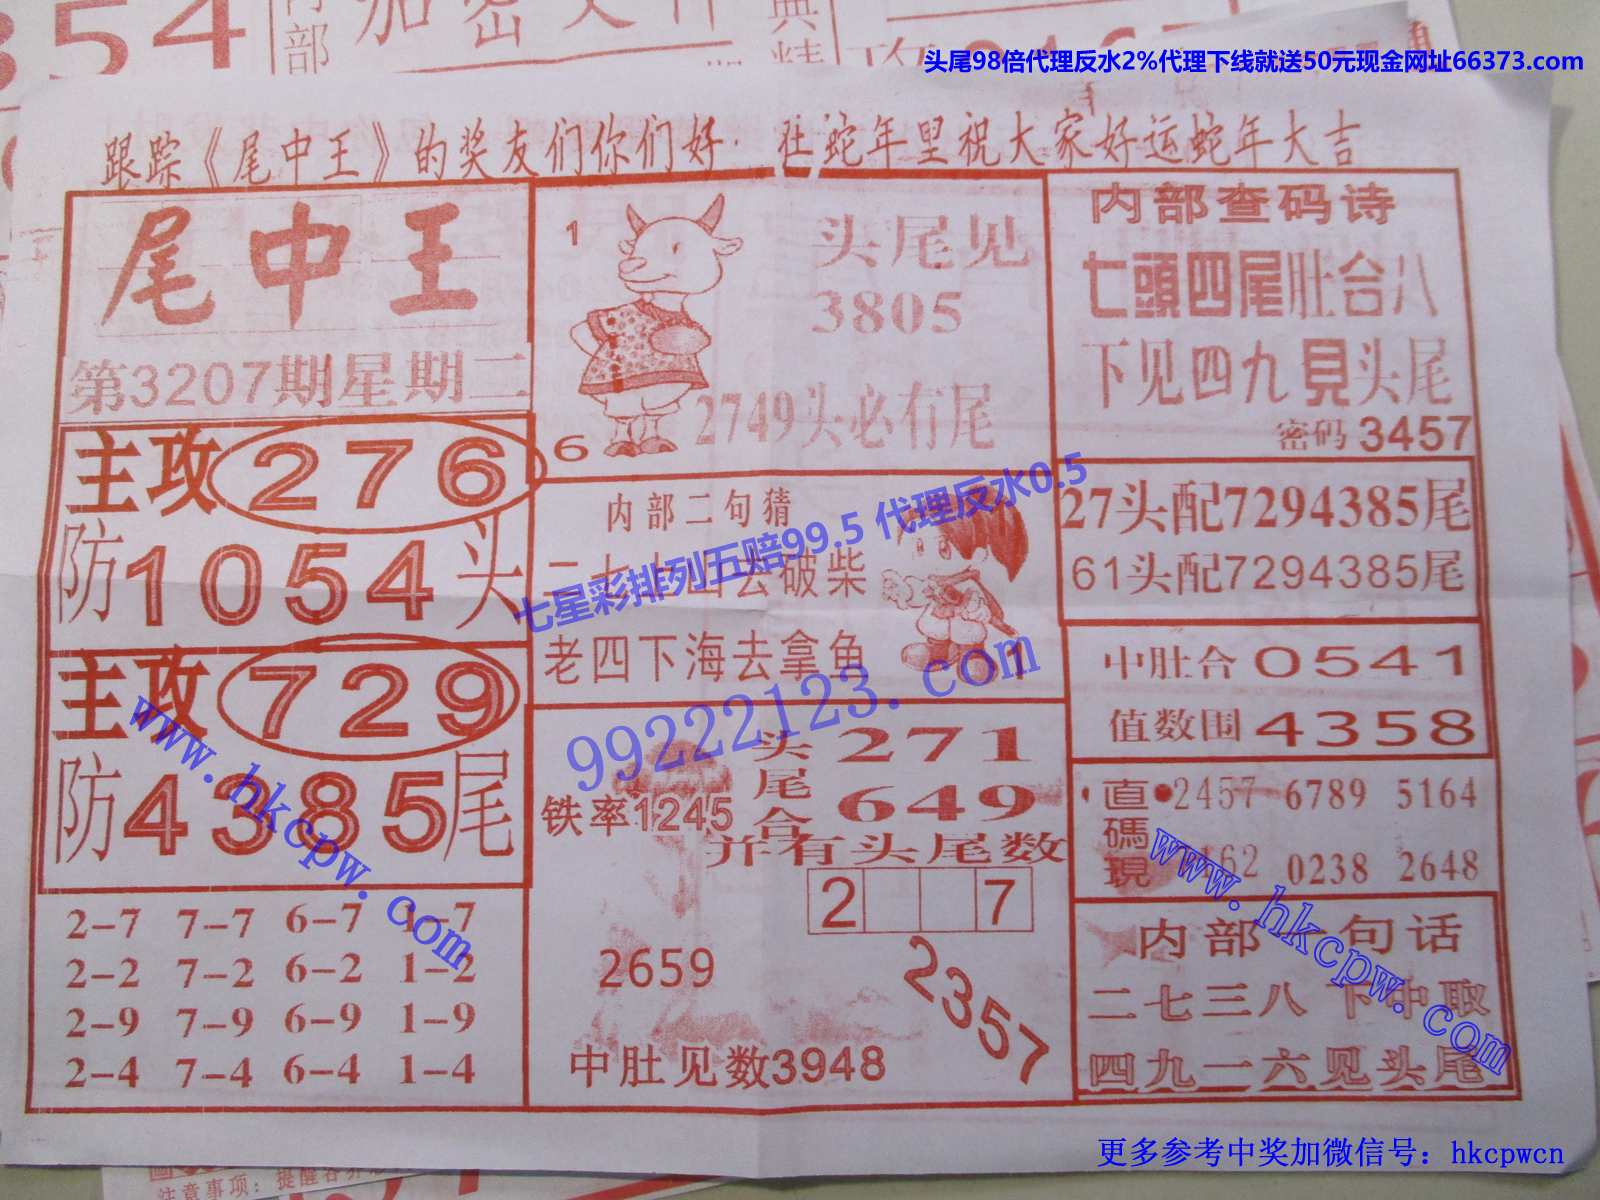 354
内部
加密文件
头尾98倍代理反水2%代理下线就送50元现金网址66373.com
跟踪《尾中王》的奖友们你们好. 在蛇年里祝大家好运蛇年大吉
尾中王
第3207期星期二
主攻276
防1054头
主攻729
防4385尾
2-7 7-7 6-7 1-7
2-2 7-2 6-2 1-2
2-9 7-9 6-9 1-9
2-4 7-4 6-4 1-4
1
6
头尾见
3805
2749头必有尾
内部二句猜
二七上山去破柴
老四下海去拿鱼
01
七星彩排列五赔99.5 代理反水0.5
99222123.com
铁率1245
头尾合
271
649
并有头尾数
2 7
2659
2357
中肚见数3948
内部查码诗
七頭四尾肚合八
下见四九見头尾
密码3457
27头配7294385尾
61头配7294385尾
中肚合0541
值数围4358
直碼現
2457 6789 5164
162 0238 2648
内部一句话
二七三八下中取
四九一六见头尾
www.hkcpw.com
www.hkcpw.com
更多参考中奖加微信号：hkcpwcn
注意事项：提醒各